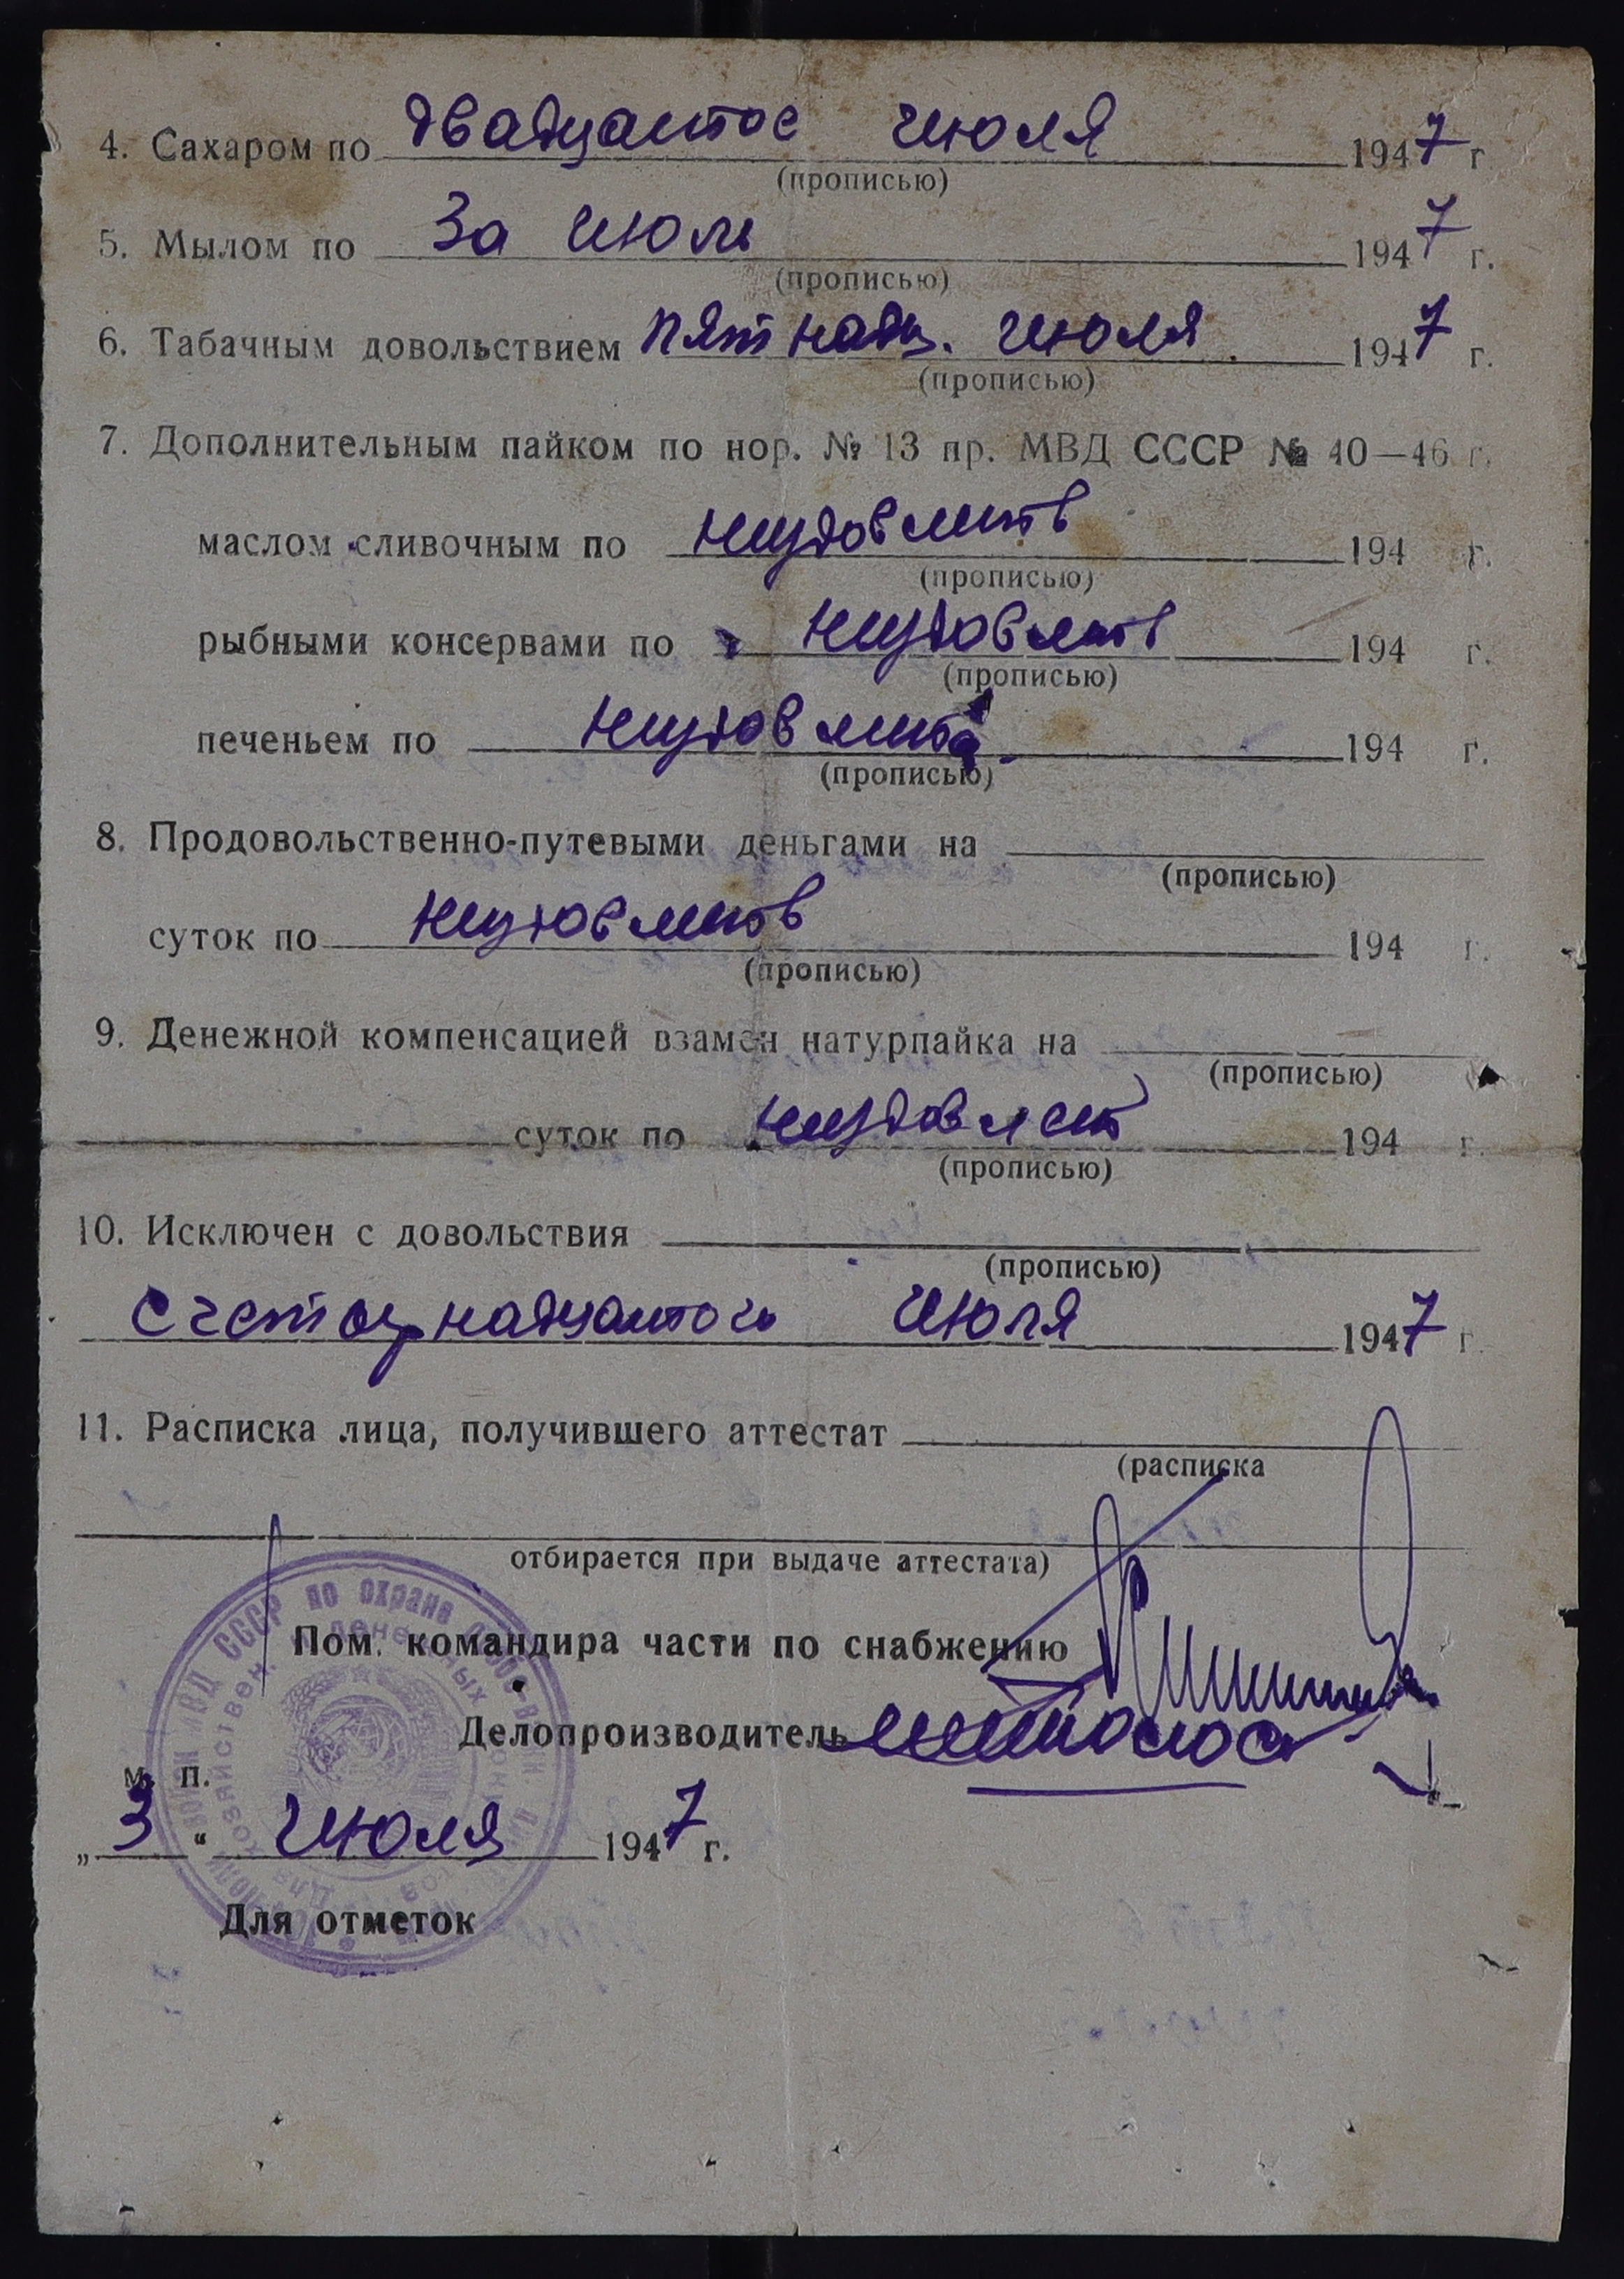 4. Сахаром по двадцатое июля 1947 г.
(прописью)
5. Мылом по За июль 1947 г.
(прописью)
6. Табачным довольствием пятнадц. июля 1947 г.
(прописью)
7. Дополнительным пайком по нор. № 13 пр. МВД СССР № 40—46 г.
маслом сливочным по неудовлетв 194 г.
(прописью)
рыбными консервами по неудовлетв 194 г.
(прописью)
печеньем по неудовлетв 194 г.
(прописью)
8. Продовольственно-путевыми деньгами на
(прописью)
суток по неудовлетв 194 г.
(прописью)
9. Денежной компенсацией взамен натурпайка на
(прописью)
суток по неудовлет 194 г.
(прописью)
10. Исключен с довольствия
(прописью)
с четырнадцатого июля 1947 г.
11. Расписка лица, получившего аттестат
(расписка
отбирается при выдаче аттестата)
Пом. командира части по снабжению
Делопроизводитель
м. п.
„3“ июля 1947 г.
Для отметок